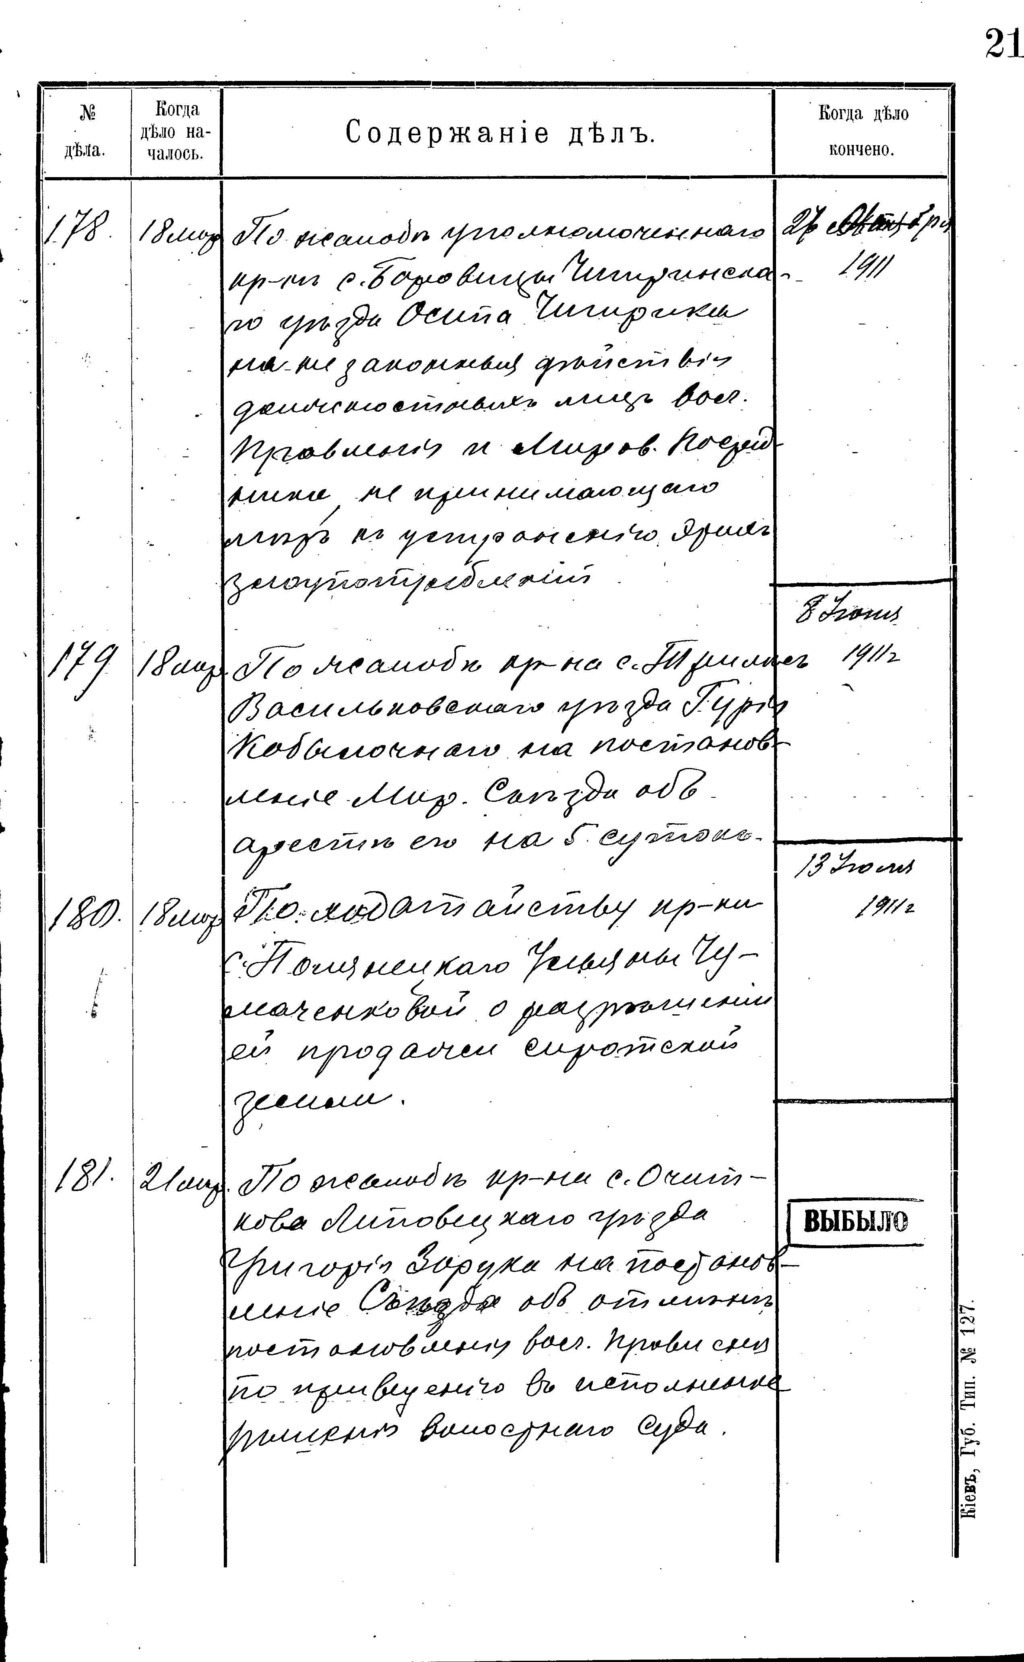 21
№ дѣла.
Когда дѣло началось.
Содержаніе дѣлъ.
Когда дѣло кончено.
178. 18 мар По жалобѣ уполномоченнаго 27 Октября
кр-нъ с. Боровицы Чигиринска- 1911
го уѣзда Осипа Чигирика
на незаконныя дѣйствія
должностныхъ лицъ вол.
Правленія и Миров. Посред
ника, не принимающаго
мѣръ къ устраненію этихъ
злоупотребленій
8 Іюня
179 18 мар. По жалобѣ кр-на с. Трилѣсъ 1911 г
Васильковскаго уѣзда Гурія
Кобылочнаго на постанов-
леніе Мир. Съѣзда объ
арестѣ его на 5 сутокъ.
13 Іюля
180. 18 мар По ходатайству кр-ки 1911 г
с. Полянецкаго Ульяны Чу-
маченковой о разрѣшеніи
ей продажи сиротской
земли.
181. 21 мар. По жалобѣ кр-на с. Очит-
кова Липовецкаго уѣзда
ВЫБЫЛО
Григорія Зарука на постанов-
леніе Съѣзда объ отмѣнѣ
постановленія вол. Правленія
по приведенію въ исполненіе
рѣшенія волостнаго Суда.
Кіевъ, Губ. Тип. № 127.